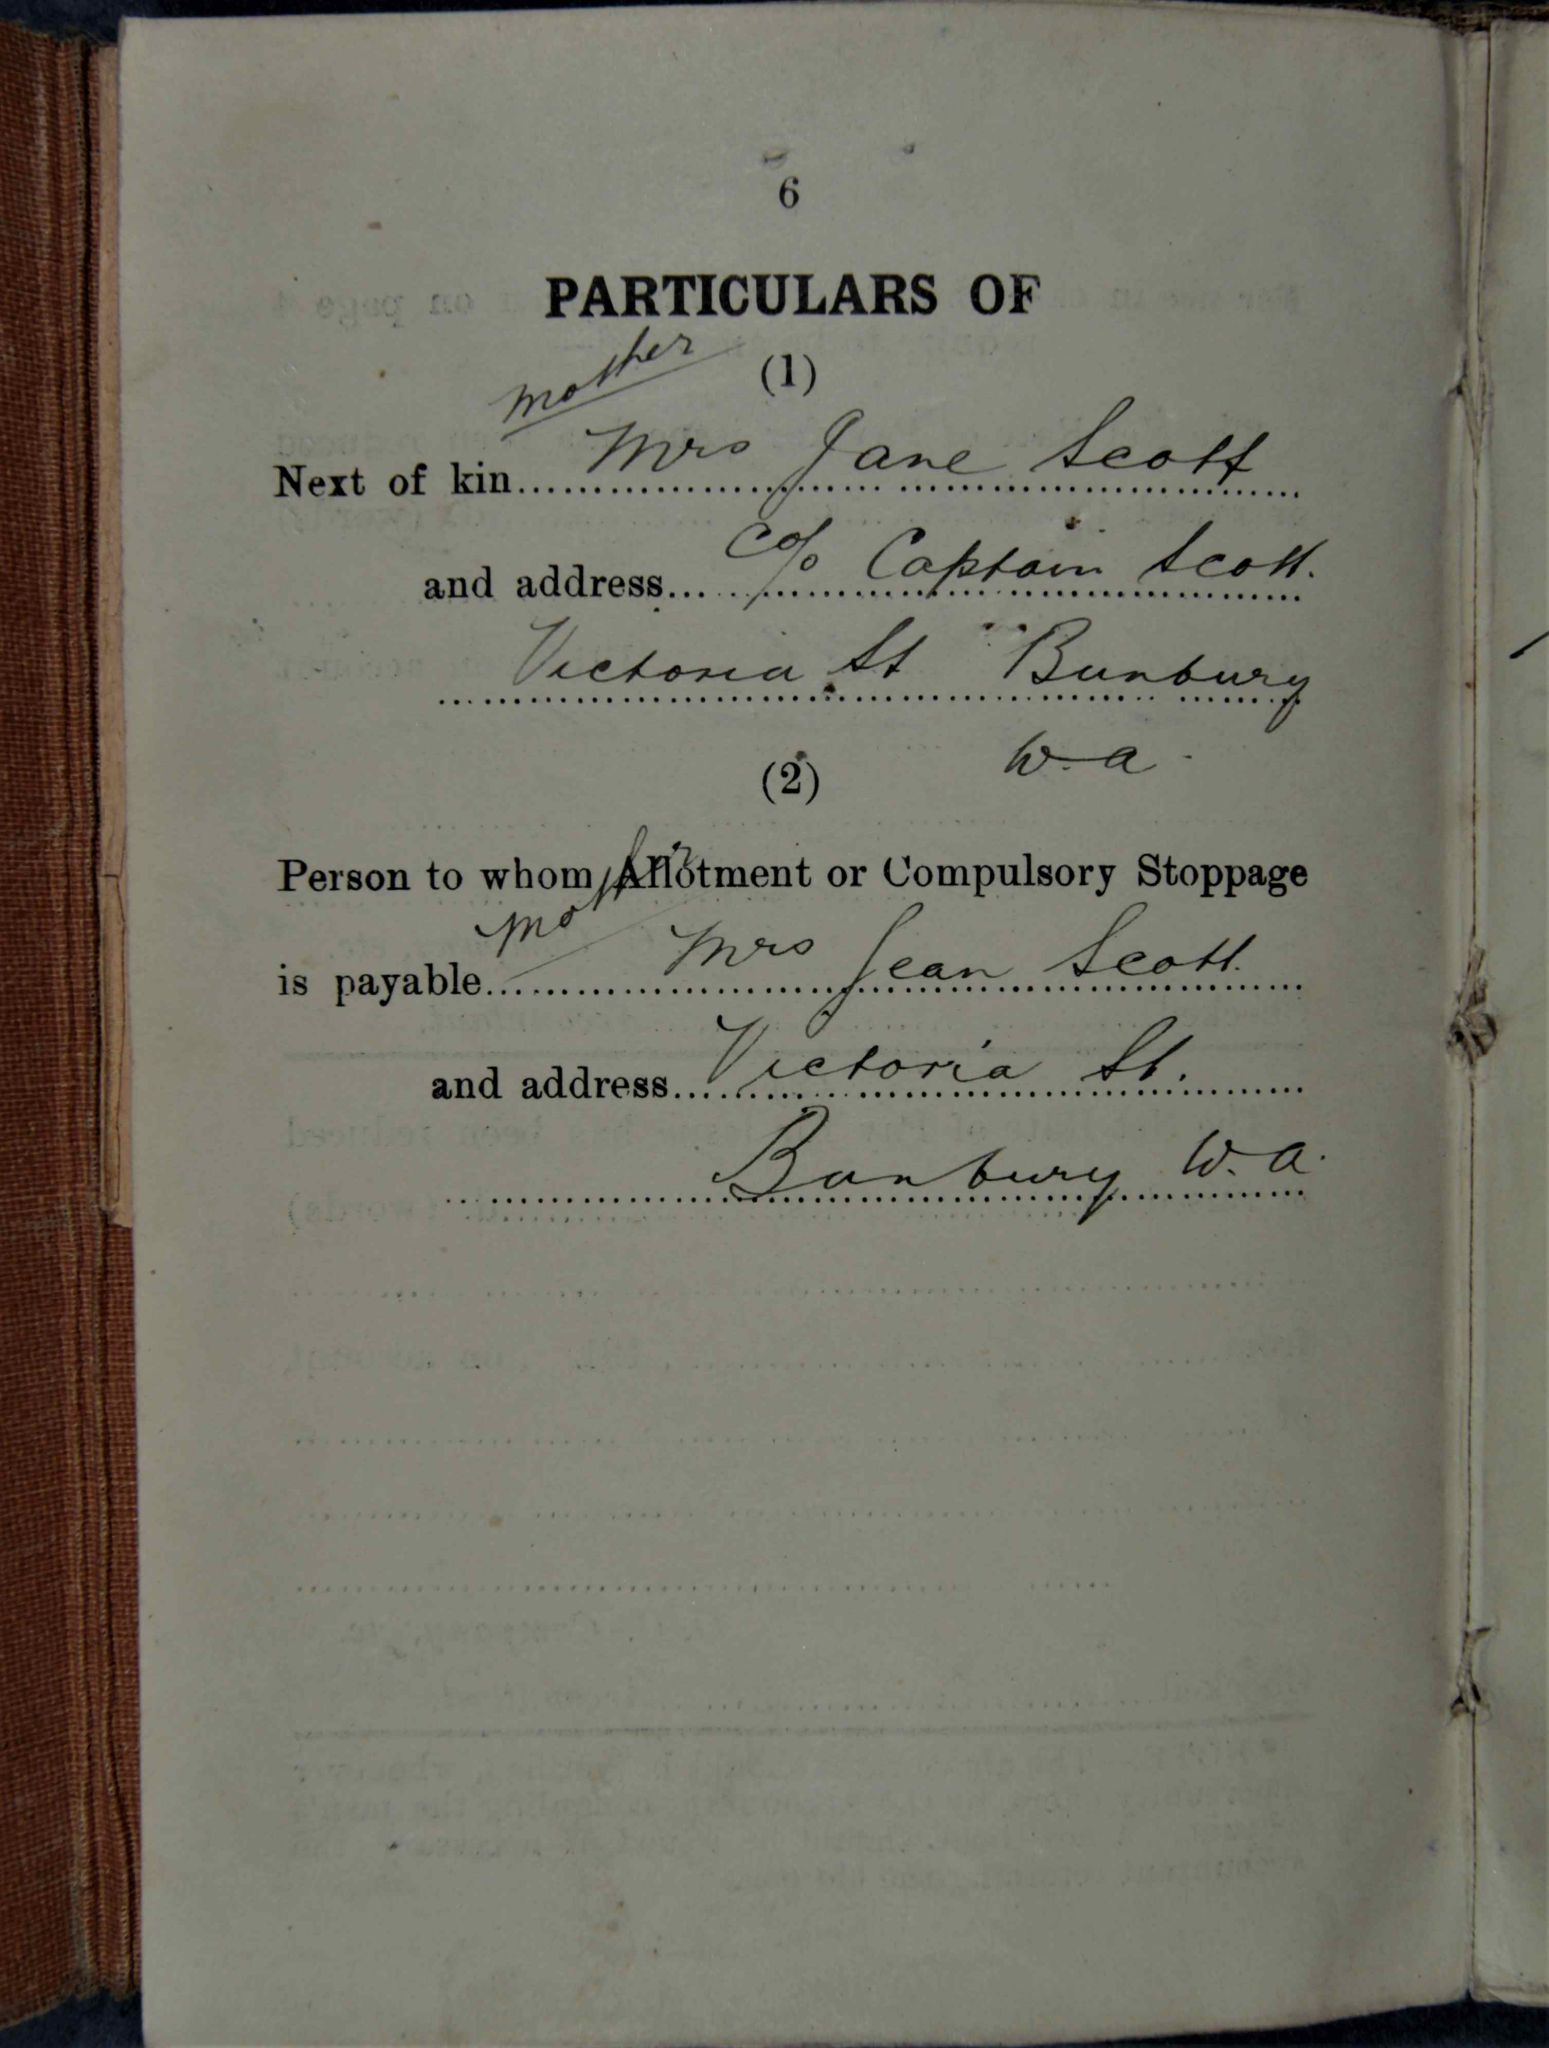 6
PARTICULARS OF
(1)
mother
Next of kin Mrs Jane Scott
and address c/o Captain Scott.
Victoria St Bunbury
W.A.
(2)
Person to whom Allotment or Compulsory Stoppage
mother
is payable Mrs Jean Scott.
and address Victoria St.
Bunbury W.A.